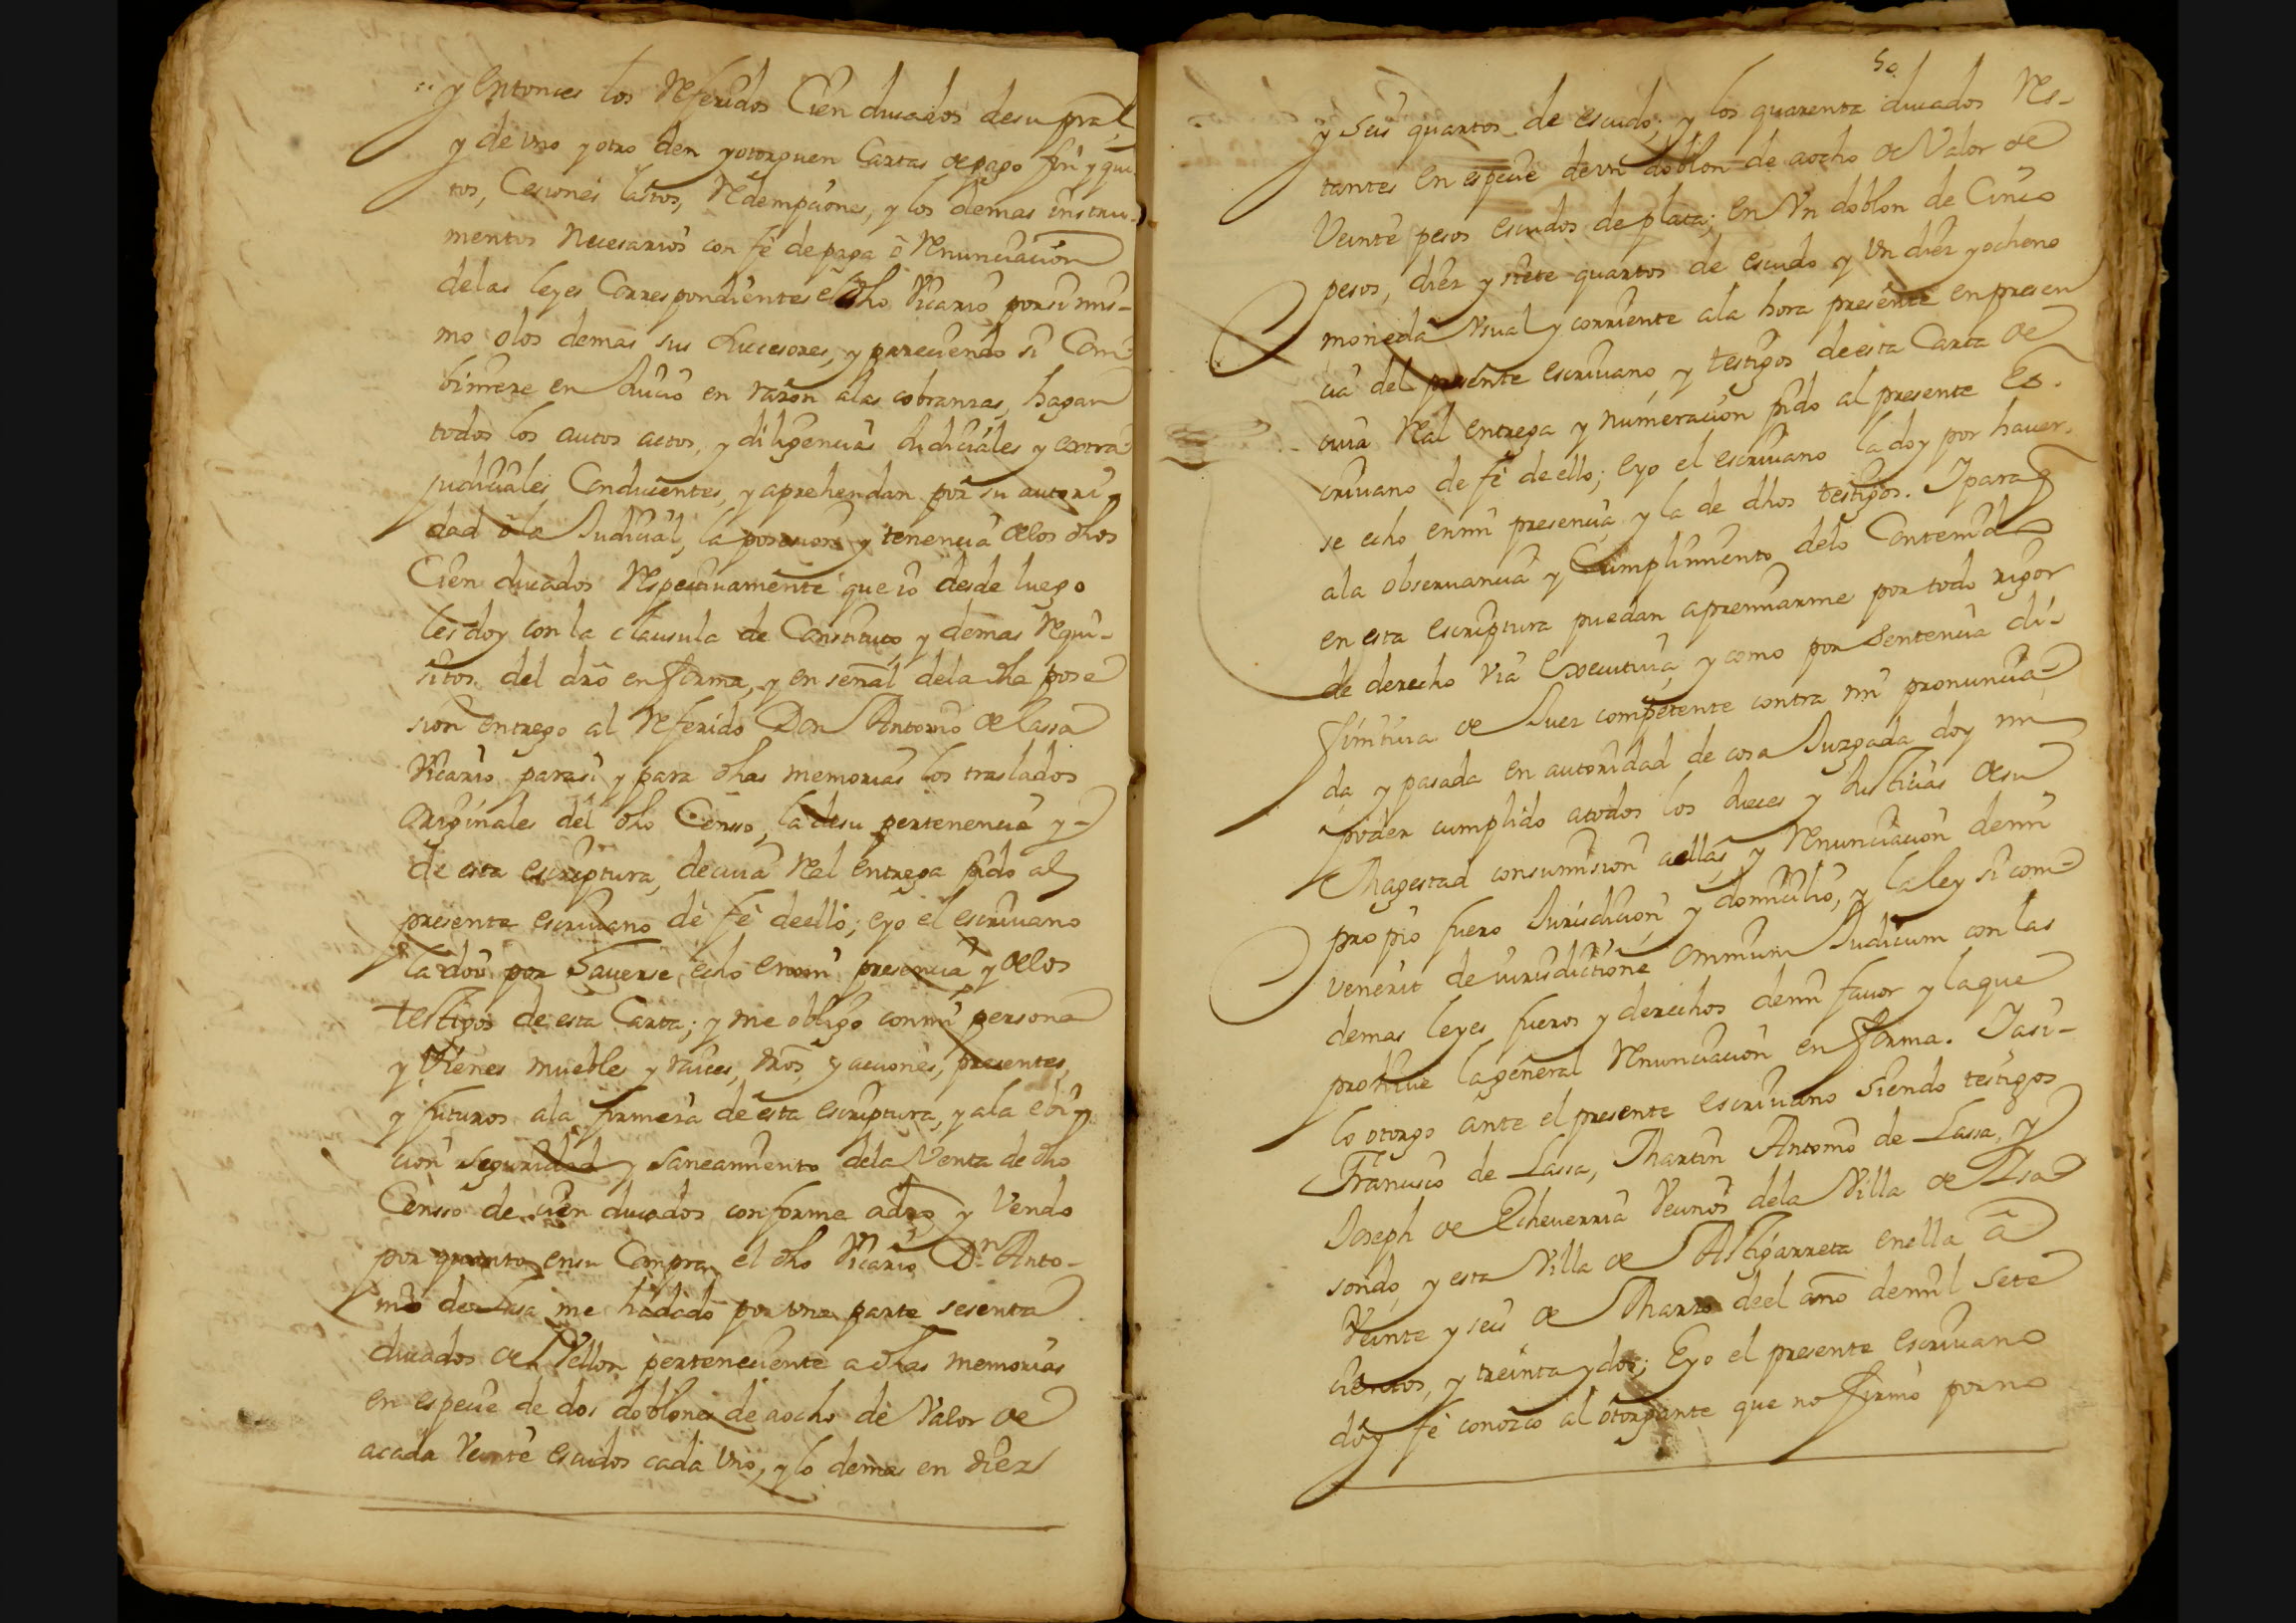 y entonces los referidos Cien ducados de su pral
y de uno y otro den y otorguen Cartas de pago fin y qui-
tos, Cesiones lastos, redempciones, y los demas instru-
mentos necesarios con fe de paga o renunciacion
de las leyes Correspondientes el dho Vicario por si mis-
mo o los demas sus successores, y pareciendo si Com-
biniere en Juicio en razon a las cobranzas, hagan
todos los autos actos, y diligencias Judiciales y extra
judiciales Conducentes, y aprehendan por su autori-
dad o la Judicial, la posesion y tenencia de los dhos
Cien ducados respectivamente que io desde luego
les doy con la clausula de Constituto y demas requi-
sitos del dro en forma, y en señal de la dha pose
sion entrego al referido Don Antonio de Lassa
Vicario para si y para dhas memorias los traslados
originales del dho Censso, la de su pertenencia y
de esta escriptura, de cuia real entrega pido al
presente escriuano de fe de ello; e yo el escriuano
la doy por hauerse echo en mi presencia y de los
testigos de esta Carta; y me obligo con mi persona
y vienes muebles y raices, dros, y acciones, presentes,
y futuros a la firmeza de esta escriptura, y a la ebic
cion seguridad y saneamiento de la Venta de dho
Censso de cien ducados conforme a dro y Vendo
por quanto en su Compra el dho Vicario Dn Anto-
nio de Lasa me ha dado por una parte sesenta
ducados de Vellon perteneciente a dhas memorias
en especie de dos doblones de a ocho de Valor de
a cada Veinte escudos cada uno, y lo demas en diez
50
y seis quartos de escudo; y los quarenta ducados res-
tantes en especie de un doblon de a ocho de Valor de
Veinte pesos escudos de plata; en Un doblon de Cinco
pesos, diez y siete quartos de escudo y Un diez y ocheno
moneda Usual y corriente a la hora presente en presen
cia del presente escriuano y testigos de esta Carta de
cuia real entrega y numeracion pido al presente Es-
criuano de fe de ello; e yo el escriuano la doy por hauer-
se echo en mi presencia y la de dhos testigos. I para q
a la obseruancia y Cumplimiento de lo Contenido
en esta escriptura puedan apremiarme por todo rigor
de derecho Via Executiua, y como por Sentencia di-
finitiua de Juez competente contra mi pronuncia-
da y pasada en autoridad de cosa Juzgada doy mi
poder cumplido a todos los Jueces y Justicias de su
Magestad con sumision a ellas, y renunciacion de mi
propio fuero Jurisdicion, y domicilio, y la ley si com-
venerit de iurisdictione omnium Judicum con las
demas leyes fueros y derechos de mi fauor y la que
prohiue la general renunciacion en forma. I asi-
lo otorgo ante el presente escriuano siendo testigos
Francisco de Lassa, Martin Antonio de Lassa, y
Joseph de Echeuerria Vecinos de la Villa de Isa
sondo, y esta Villa de Astigarreta en ella a
Veinte y seis de Marzo de el año de mil sete
cientos, y treinta y dos; E yo el presente escriuano
doy fe conozco al otorgante que no firmó por no